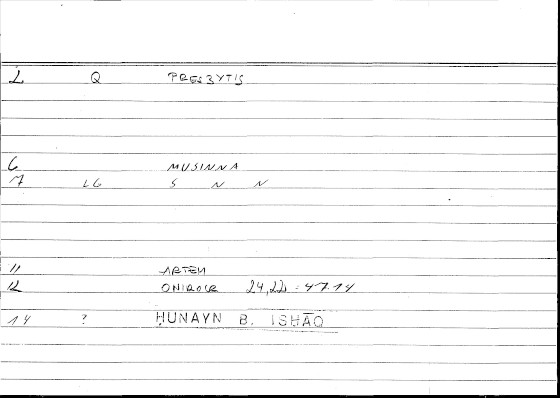 2 Q PRESBYTIS
6 MUSINNA
7 LG S N N
11 ARTEM
12 ONIROCR 24,22 : 47.14
14 ? ḤUNAYN B. ISḤĀQ